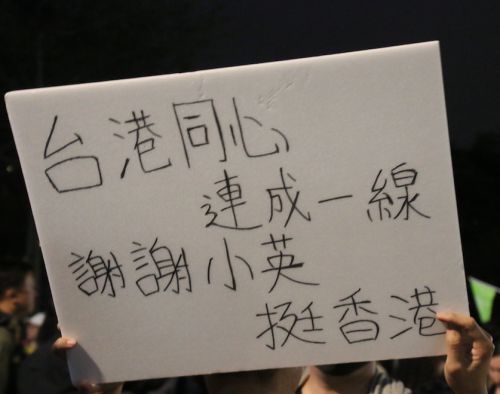 台港同心
連成一線
謝謝小英
挺香港